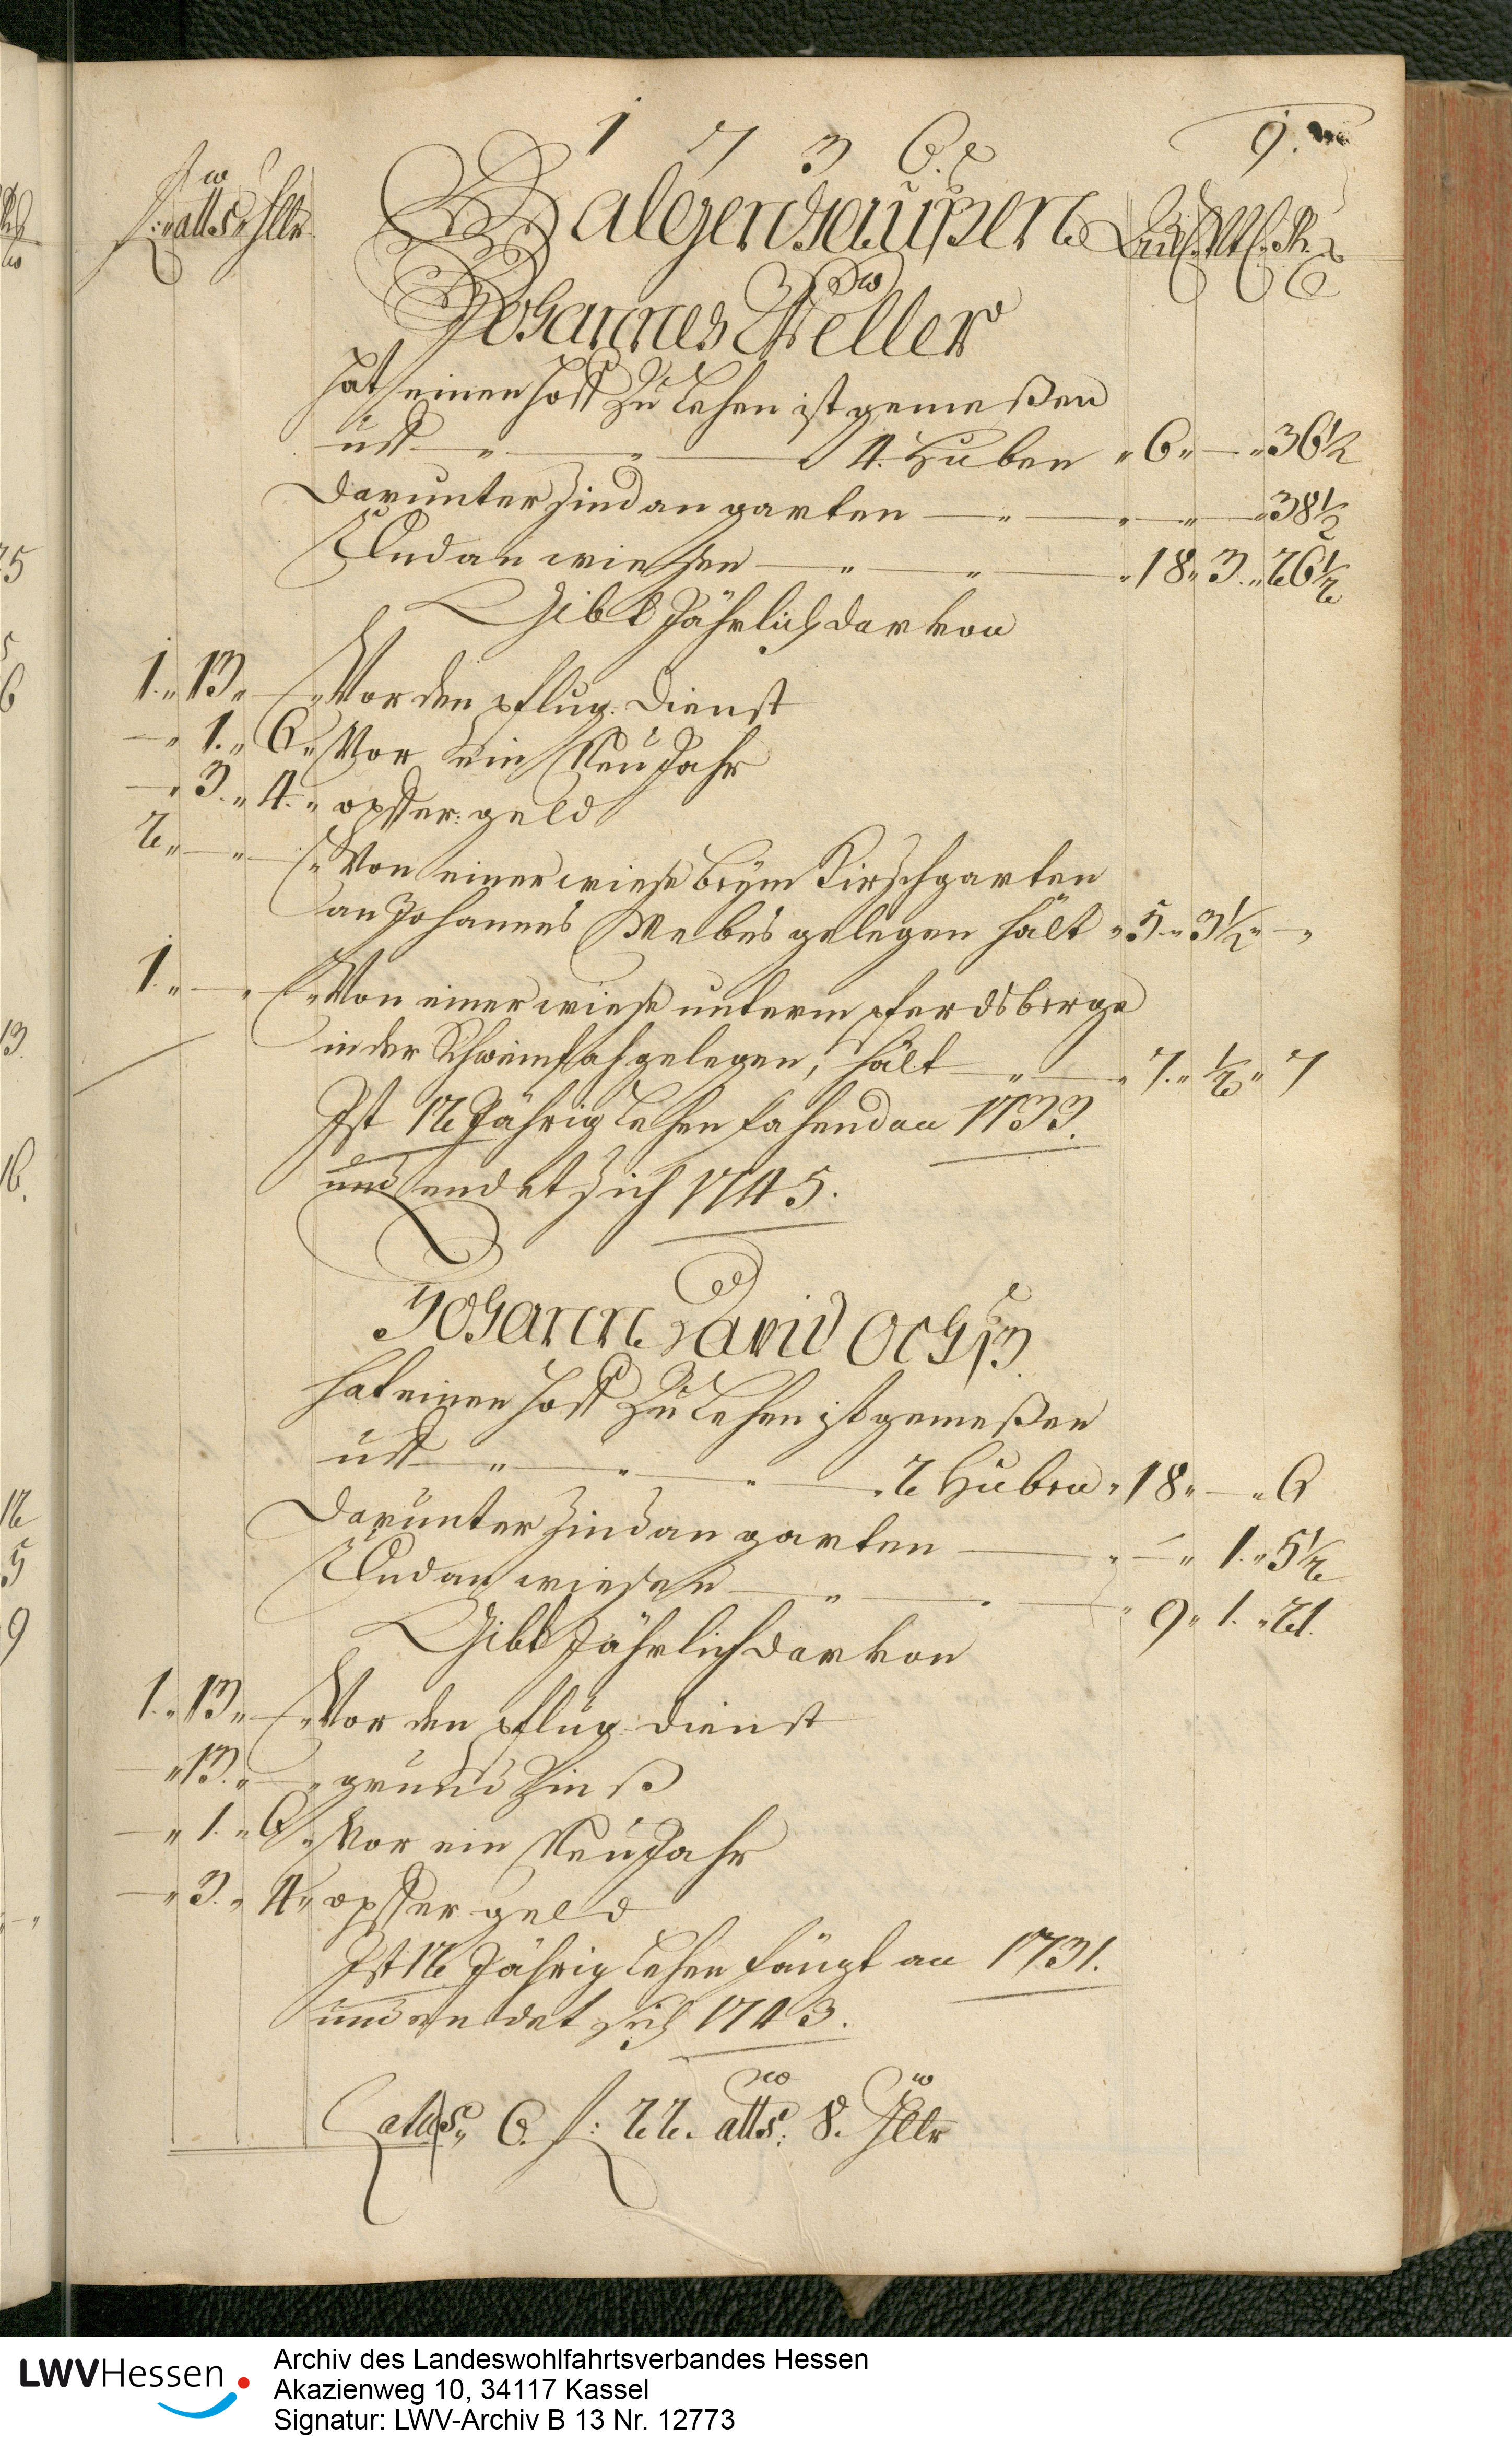 1 7 3 6.
9.
f: alb9 hllr
Balgenhaußen
Ack. Vtl. Rt.
Johannes Weller
hat einen Hoff zu Lehen ist gemeßen
uff „ — „ — 4. Huben „ 6 „ — „ 36 1/2
Darunter sind an garten — „ — „ — „ — 38 1/2
Und an wiesen — „ — „ — „ 18 „ 3. „ 26 1/2
Gibt Jährlich darvon
1. „ 13 „ — „ Vor den pflug. Dienst
— „ 1. „ 6 „ Vor ein Neu Jahr
— „ 3. „ 4. „ opffer: geld
2 „ — „ — „ Von einer wiese beym Kirschgarten
an Johannes Mebes gelegen hält „ 5. „ 3 1/2 „ —
1. „ — „ — „ Von einer wiese unterm pferdsberge
in der gelegen, hält — „ — „ 7. „ 1/2 „ 7
Ist 12 Jährig Lehen fahend an 1733.
und endet sich 1745.
Johann David Ochß
hat einen Hoff zu Lehen ist gemeßen
uff „ — „ — „ — „ 2 Huben „ 18 „ — „ 6
Darunter sind an garten — „ — „ 1. „ 5 1/2
Und an wiesen — „ — „ — „ 9 „ 1. „ 21.
Gibt Jährlich darvon
1. „ 13 „ — „ Vor den pflug: dienst
— „ 13. „ — „ grund Zinß
— „ 1. „ 6 „ Vor ein Neu Jahr
— „ 3. „ 4 „ opffer geld
Ist 12 Jährig Lehen fängt an 1731.
und endet sich 1743.
Latus, 6. f: 22. alb9: 8. hllr
LWVHessen
Archiv des Landeswohlfahrtsverbandes Hessen
Akazienweg 10, 34117 Kassel
Signatur: LWV-Archiv B 13 Nr. 12773